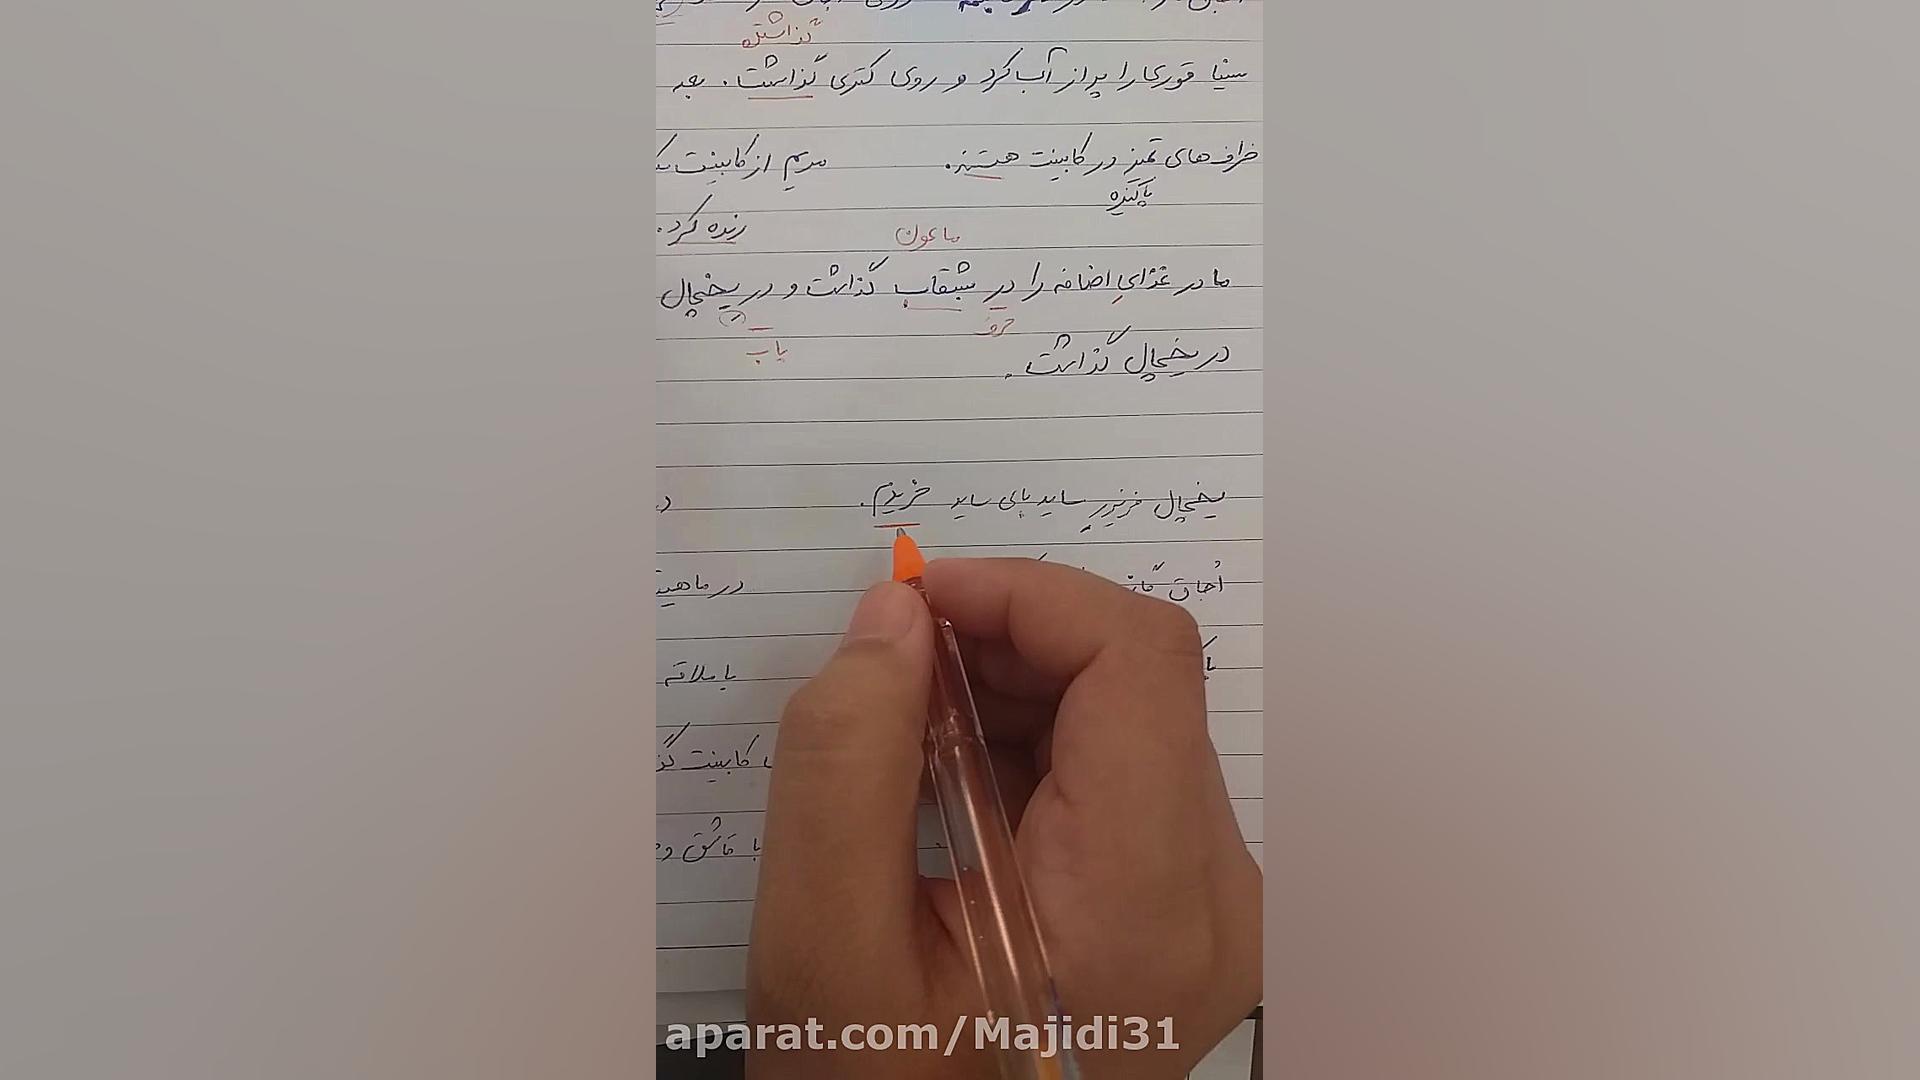 گذاشته
سینا قوری را پر از آب کرد و روی کتری گذاشت. بعد
ظرف‌های تمیز در کابینت هستند. مریم از کابینت
پاکیزه
رنده کرد.
ماعون
مادر غذای اضافه را در بشقاب گذاشت و در یخچال
حرف
یاب
در یخچال گذاشت.
یخچال فریزر ساید بای ساید خریدم. د
اُجاق گاز در ماهیت
با ملاقه
کابینت گذ
با قاشق و
aparat.com/Majidi31